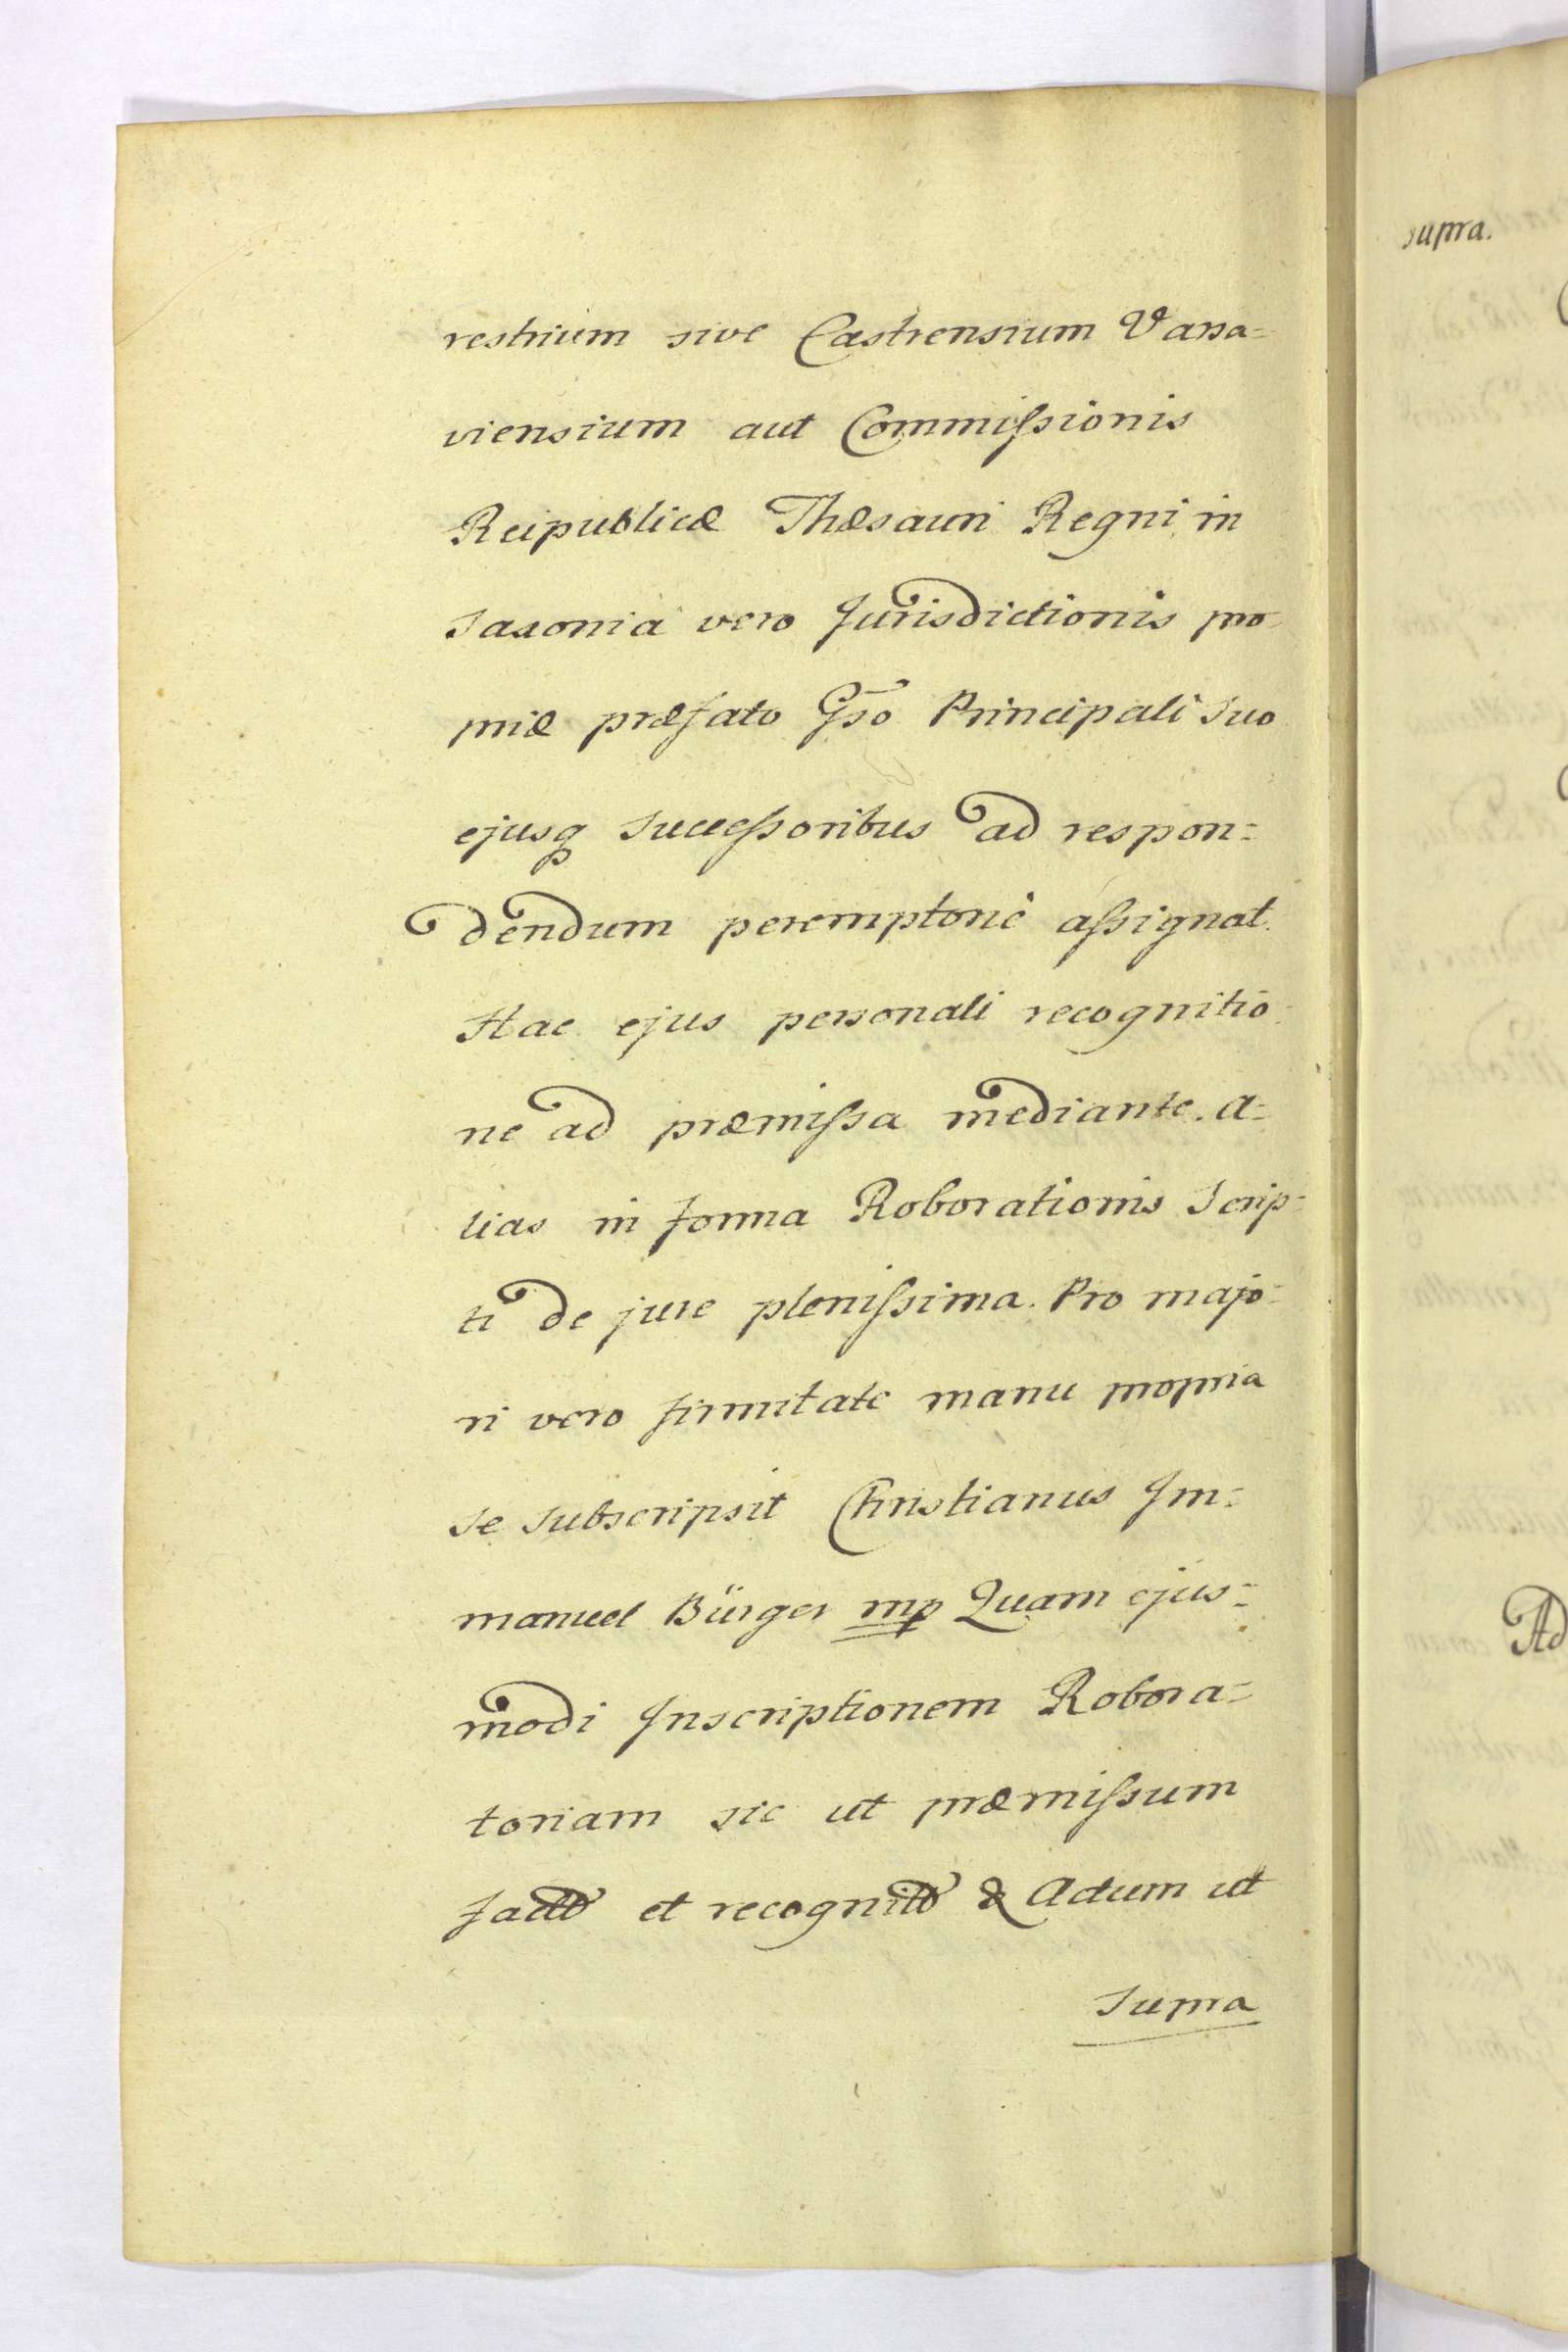 restrium sive Castrensium Varsa=
viensium aut Commissionis
Reipublicæ Thæsauri Regni in
Saxonia vero Jurisdictionis pro
priæ præfato Gso Principali Suo
ejusq Successoribus ad respon=
dendum peremptorie assignat.
Hac ejus personali recognitio
ne ad præmissa mediante. a=
lias in forma Roborationis Scrip=
ti de jure plenissima. Pro majo=
ri vero firmitate manu propria
se subscripsit Christianus Im=
manuel Bürger mp Quam ejus=
modi Inscriptionem Robora=
toriam sic ut præmissum
et & Actum ut
Supra
supra.
Ad